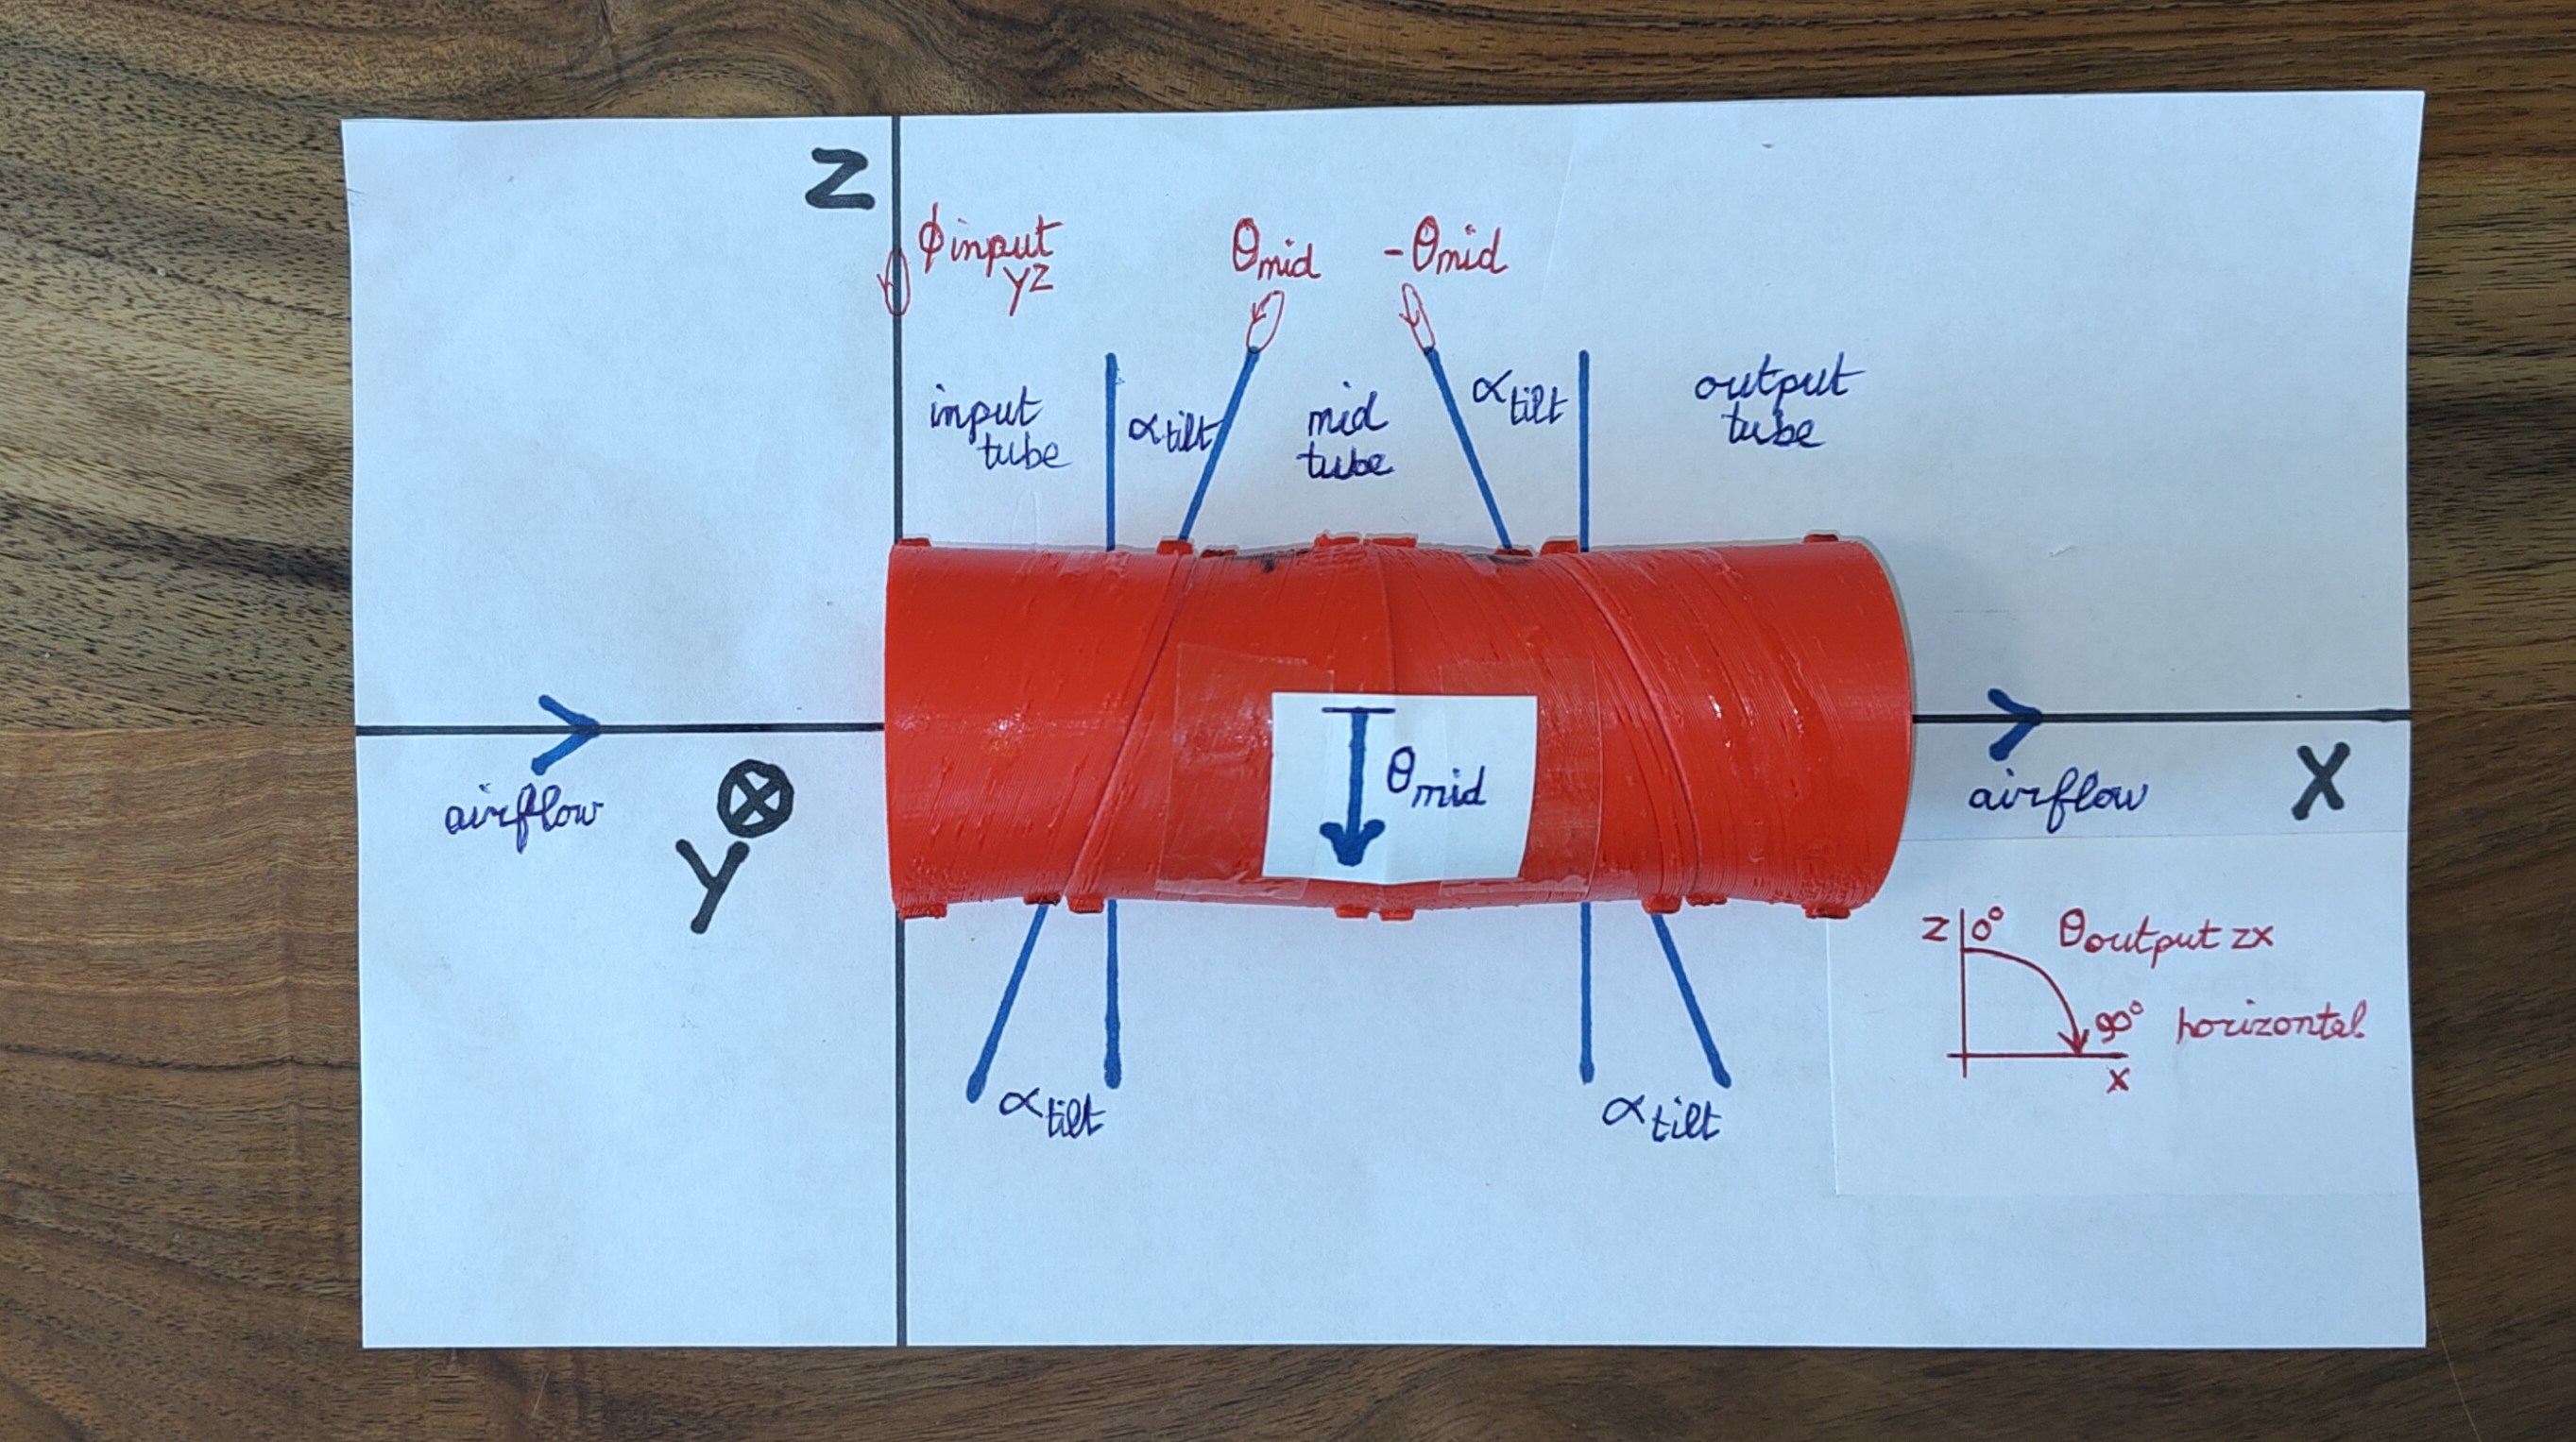 Z
ϕinput
yz
θmid
-θmid
input
tube
αtilt
mid
tube
αtilt
output
tube
θmid
airflow
Y
airflow
X
z 0° θoutput zx
90° horizontal
x
αtilt
αtilt